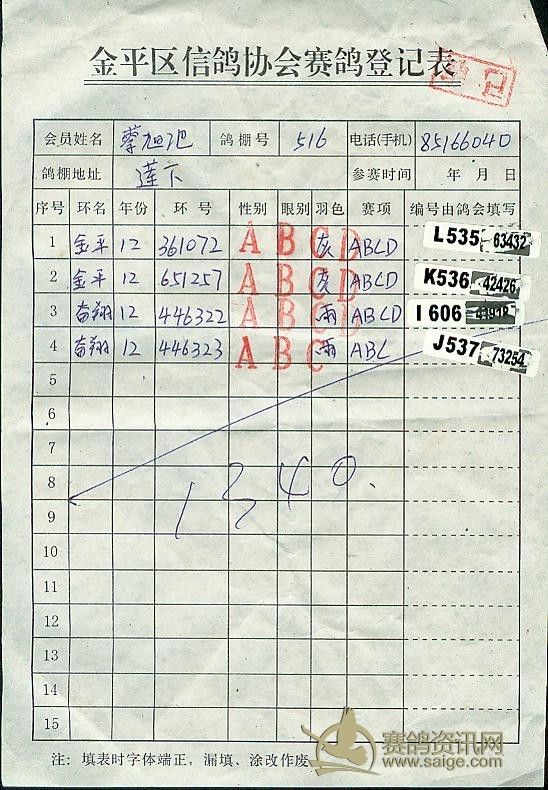 金平区信鸽协会赛鸽登记表
会员姓名 蔡旭 鸽棚号 516 电话(手机) 85166040
鸽棚地址 莲下 参赛时间 年 月 日
序号 环名 年份 环号 性别 眼别 羽色 赛项 编号由鸽会填写
1 金平 12 361072 A B C D 灰 ABCD L535 63432
2 金平 12 651257 A B C D 灰 ABCD K536 42426
3 奋翔 12 446322 A B C D 雨 ABCD I 606
4 奋翔 12 446323 A B C 雨 ABC J537 73254
5
6
7
8 1340.
9
10
11
12
13
14
15
注：填表时字体端正，漏填、涂改作废
赛鸽资讯网
www.saige.com